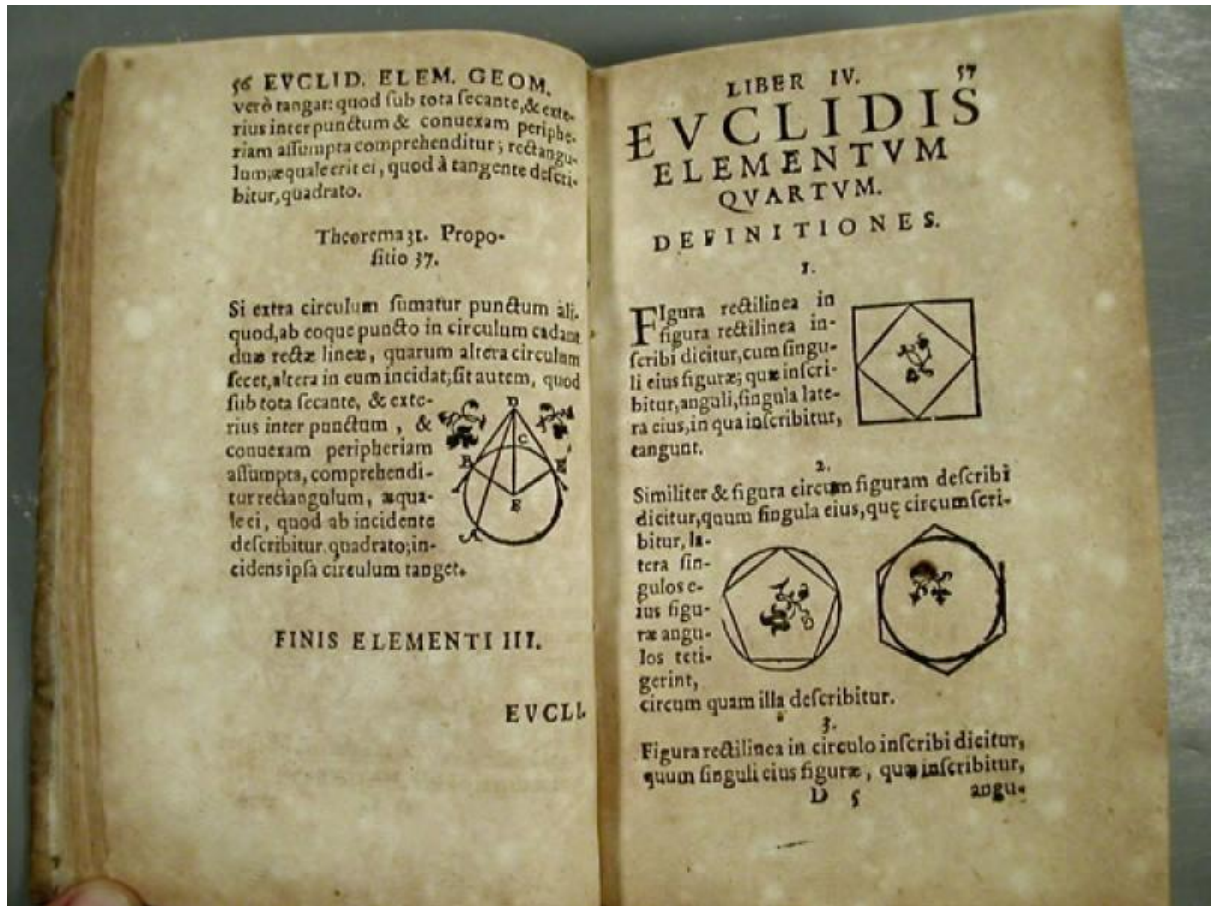 56 EVCLID. ELEM. GEOM.
verò tangat: quod ſub tota ſecante, & exte-
rius inter punctum & conuexam periphe-
riam aſſumpta comprehenditur; rectangu-
lum, æquale erit ei, quod à tangente deſcri-
bitur, quadrato.
Theorema 31. Propo-
ſitio 37.
Si extra circulum ſumatur punctum ali-
quod, ab eoque puncto in circulum cadant
duæ rectæ lineæ, quarum altera circulum
ſecet, altera in eum incidat; ſit autem, quod
ſub tota ſecante, & exte-
rius inter punctum, &
conuexam peripheriam
aſſumpta, comprehendi-
tur rectangulum, æqua-
le ei, quod ab incidente
deſcribitur quadrato; in-
cidens ipſa circulum tanget.
D
C
B
E
A
FINIS ELEMENTI III.
EVCLI-
LIBER IV. 57
EVCLIDIS
ELEMENTVM
QVARTVM.
DEFINITIONES.
1.
FIgura rectilinea in
figura rectilinea in-
ſcribi dicitur, cum ſingu-
li eius figuræ; quæ inſcri-
bitur, anguli, ſingula late-
ra eius, in qua inſcribitur,
tangunt.
2.
Similiter & figura circum figuram deſcribi
dicitur, quum ſingula eius, quę circumſcri-
bitur, la-
tera ſin-
gulos e-
ius figu-
ræ angu-
los teti-
gerint,
circum quam illa deſcribitur.
3.
Figura rectilinea in circulo inſcribi dicitur,
quum ſinguli eius figuræ, quæ inſcribitur,
D 5 angu-